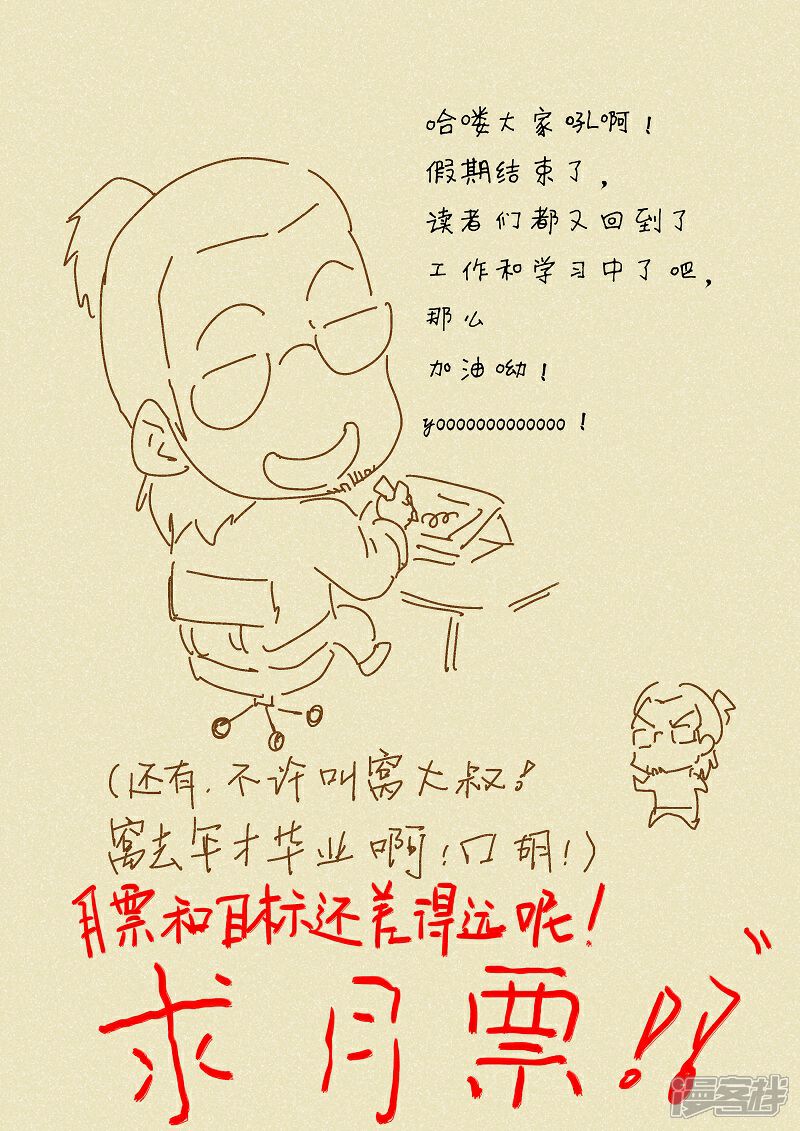 哈喽大家吼啊！
假期结束了，
读者们都又回到了
工作和学习中了吧，
那么
加油呦！
yooooooooooooo！
（还有，不许叫窝大叔！
窝去年才毕业啊！口胡！）
月票和目标还差得远呢！
求月票！！
漫客栈